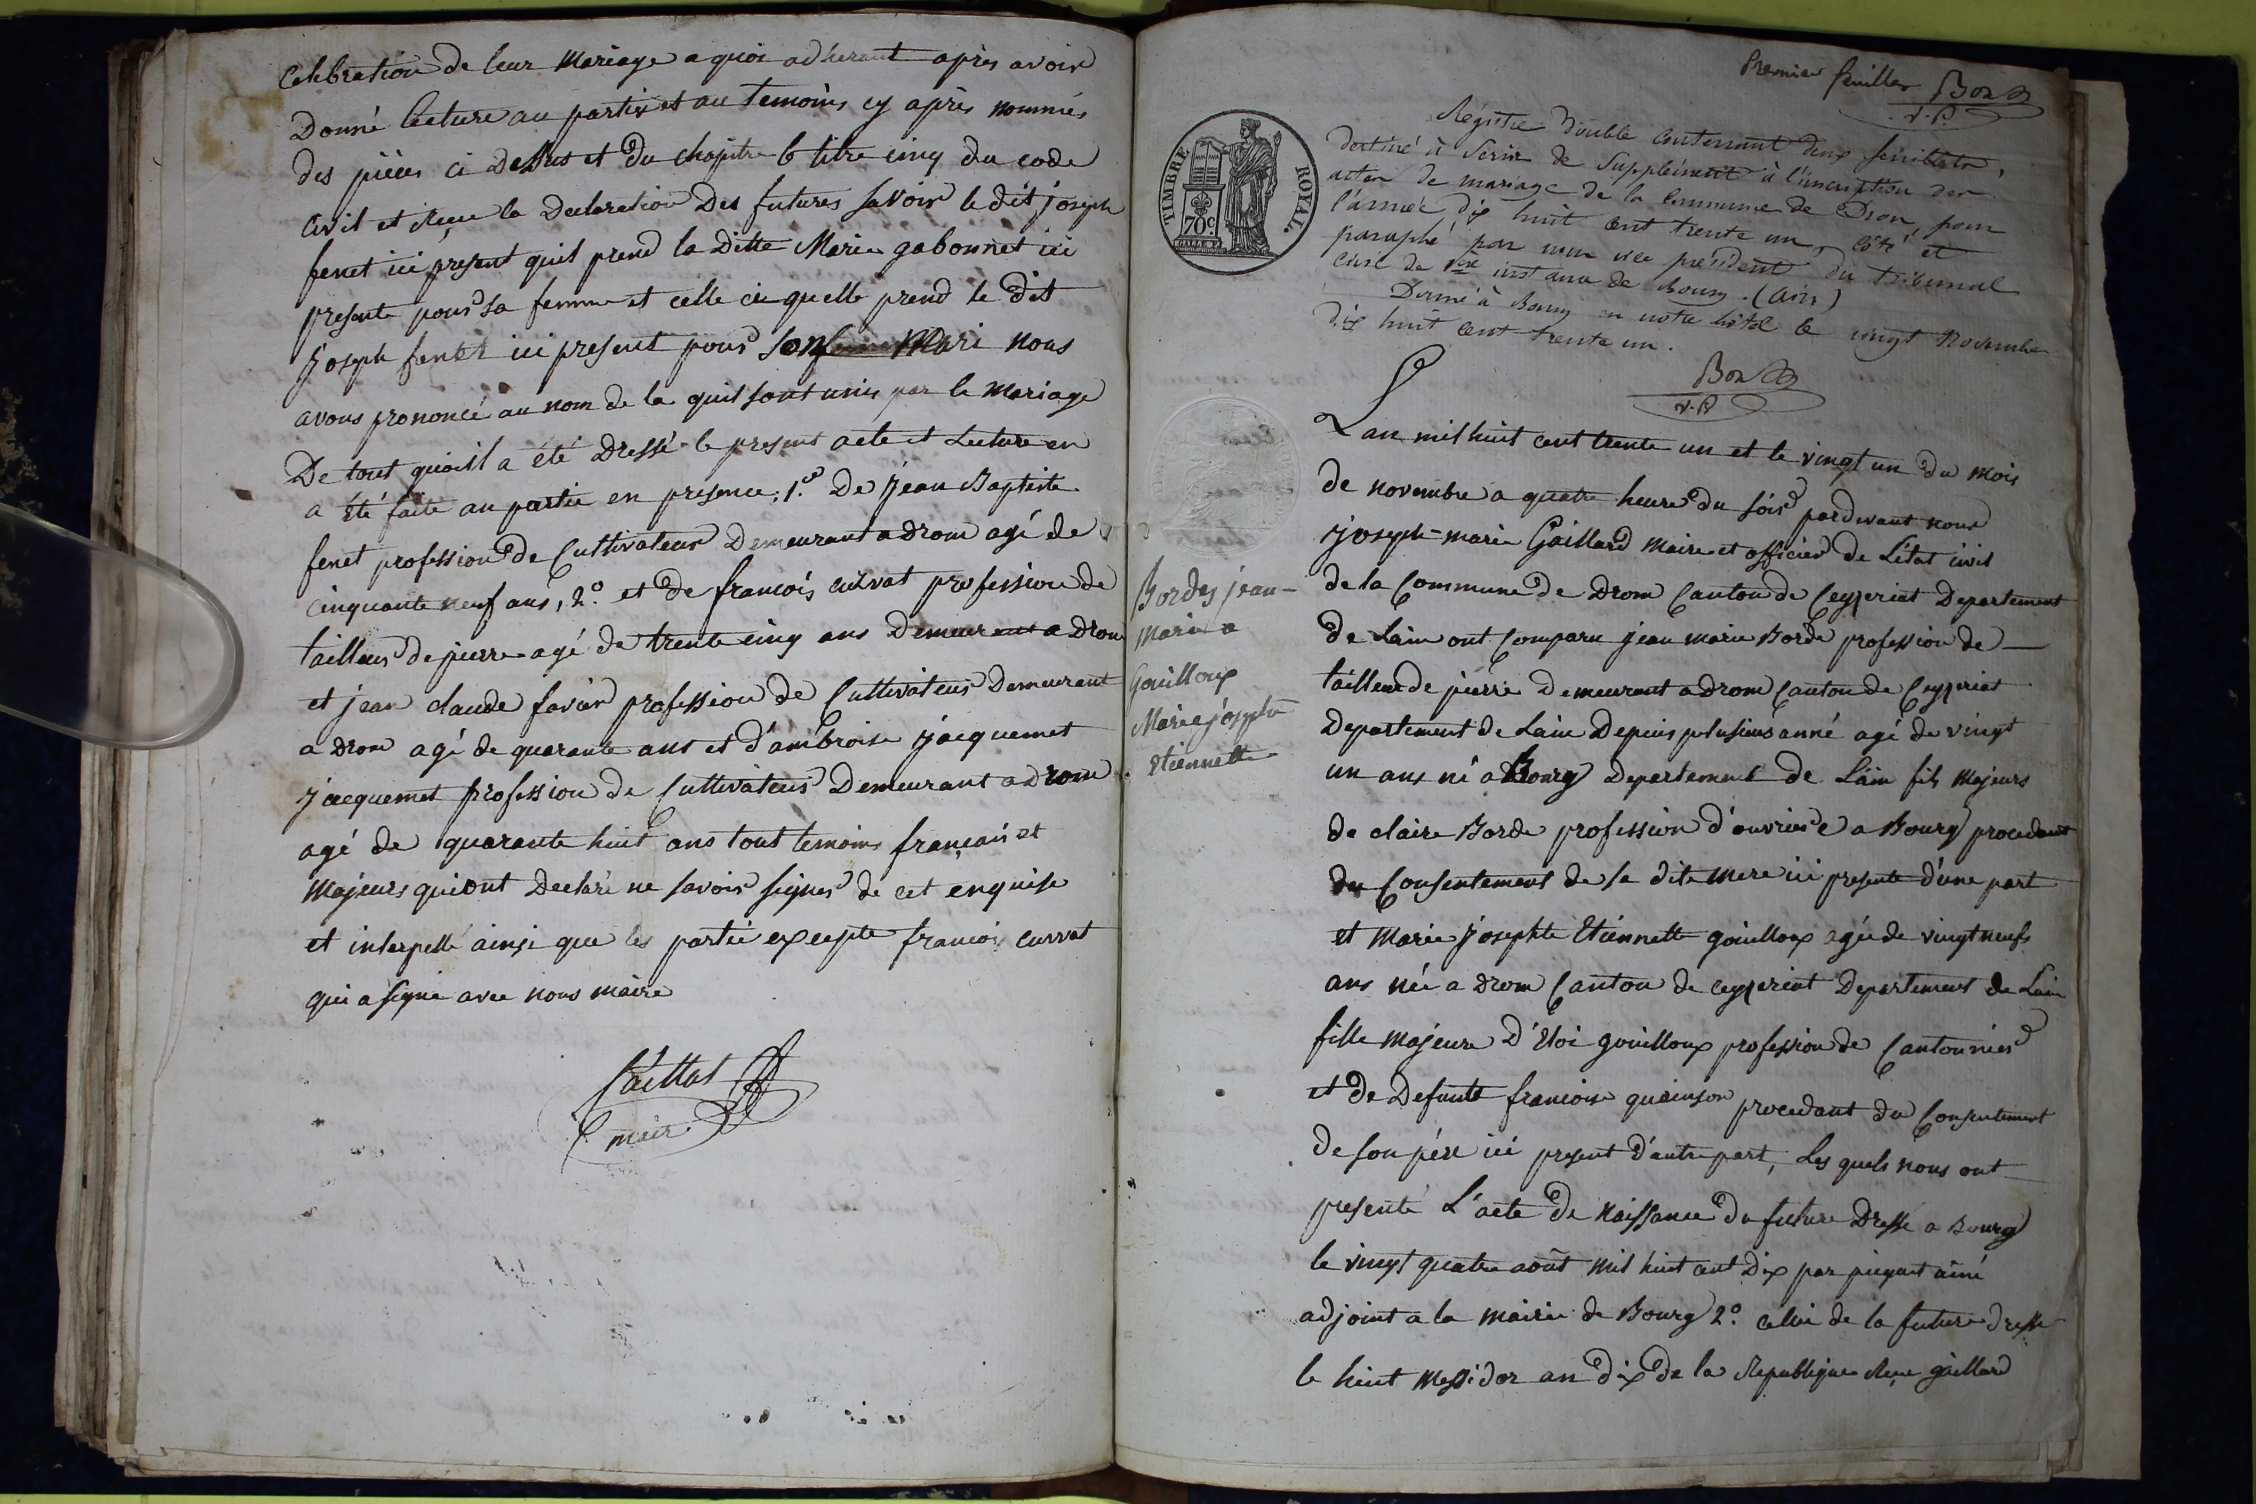 Celebration de leur Mariage a quoi adherant après avoir
Donné lecture au parties et au Temoins cy après nommés
des pièces ci Dessus et du chapitre 6 titre cinq du code
civil et Reçu la Declaration Des futures Savoir le dit joseph
fenet ici present quil prend la Ditte Marie gabonnet ici
presente pour sa femme et celle ci quelle prend le dit
joseph fenet ici present pour son Mari nous
avons prononcé au nom de la quil sont unis par le Mariage
De tout quoi il a été Dressé le present acte et Lecture en
a été faite au partie en presence, 1.º De jean Baptiste
fenet profession de Cultivateur Demeurant a Drom agé de
cinquante neuf ans, 2.º et de francois curvat profession de
tailleur de pierre agé de trente cinq ans Demeurant a Drom
et jean claude favier profession de Cultivateur Demeurant
a Drom agé de quarante ans et d'ambroise jacquemet
jacquemet profession de Cultivateur Demeurant a Drom
agé de quarante huit ans tout temoins français et
Majeurs qui ont Declaré ne savoir signer de cet enquise
et interpellé ainsi que les partie excepte francois curvat
qui a signé avec nous maire
maire
Premier feuillet Bon
v.P.
TIMBRE ROYAL.
70c
Régistre double contenant deux feuillets,
destiné à servir de Supplément à l'inscription des
actes de mariage de la Commune de Drom pour
l'année dix huit cent trente un, côté et
paraphé par nous vice président du Tribunal
civil de 1ère instance de Bourg. (Ain)
Donné à Bourg en notre hôtel le vingt Novembre
dix huit cent trente un.
Bon
v.P.
Bordes jean-
Marie a
Gouilloux
Marie josephte
Etiennette
Lan mil huit cent trente un et le vingt un du mois
de novembre a quatre heure du soir pardevant nous
joseph-marie Gaillard Maire et officier de Létat civil
de la Commune de Drom Canton de Ceyzeriat Departement
de Lain ont Comparu jean marie Borde profession de
tailleur de pierre Demeurant a Drom Canton de Ceyzeriat
Departement de Lain Depuis plusieurs anné agé de vingt
un ans né a Bourg Departement de Lain fils Majeurs
de claire Borde profession d'ouvriere a Bourg procedant
du Consentement de sa dite Mere ici presente d'une part
et Marie josephte Etiennette gouilloux agée de vingt neufs
ans née a Drom Canton de ceyzeriat Departement de Lain
fille Majeure d'Eloi gouilloux profession de Cantonnier
et de Defunte francoise quainson procedant du Consentement
de son père ici present d'autre part, Les quels nous ont
presenté L'acte de Naissance du future Dressé a Bourg
le vingt quatre août mil huit cent Dix par ainé
adjoint a la Mairie de Bourg 2.º celui de la future dressé
le huit Messidor an dix de la Republique Reçu gaillard